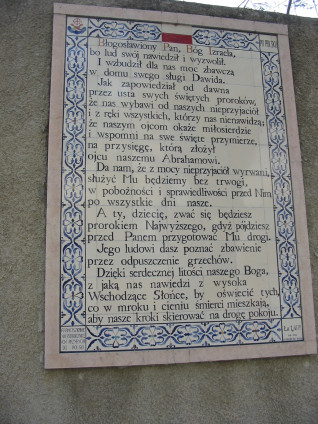 Błogosławiony Pan, Bóg Izraela,
bo lud swój nawiedził i wyzwolił.
I wzbudził dla nas moc zbawczą
w domu swego sługi Dawida.
Jak zapowiedział od dawna
przez usta swych świętych proroków,
że nas wybawi od naszych nieprzyjaciół
i z ręki wszystkich, którzy nas nienawidzą;
że naszym ojcom okaże miłosierdzie
i wspomni na swe święte przymierze,
na przysięgę, którą złożył
ojcu naszemu Abrahamowi.
Da nam, że z mocy nieprzyjaciół wyrwani,
służyć Mu będziemy bez trwogi,
w pobożności i sprawiedliwości przed Nim
po wszystkie dni nasze.
A ty, dziecię, zwać się będziesz
prorokiem Najwyższego, gdyż pójdziesz
przed Panem przygotować Mu drogi.
Jego ludowi dasz poznać zbawienie
przez odpuszczenie grzechów.
Dzięki serdecznej litości naszego Boga,
z jaką nas nawiedzi z wysoka
Wschodzące Słońce, by oświecić tych,
co w mroku i cieniu śmierci mieszkają,
aby nasze kroki skierować na drogę pokoju.